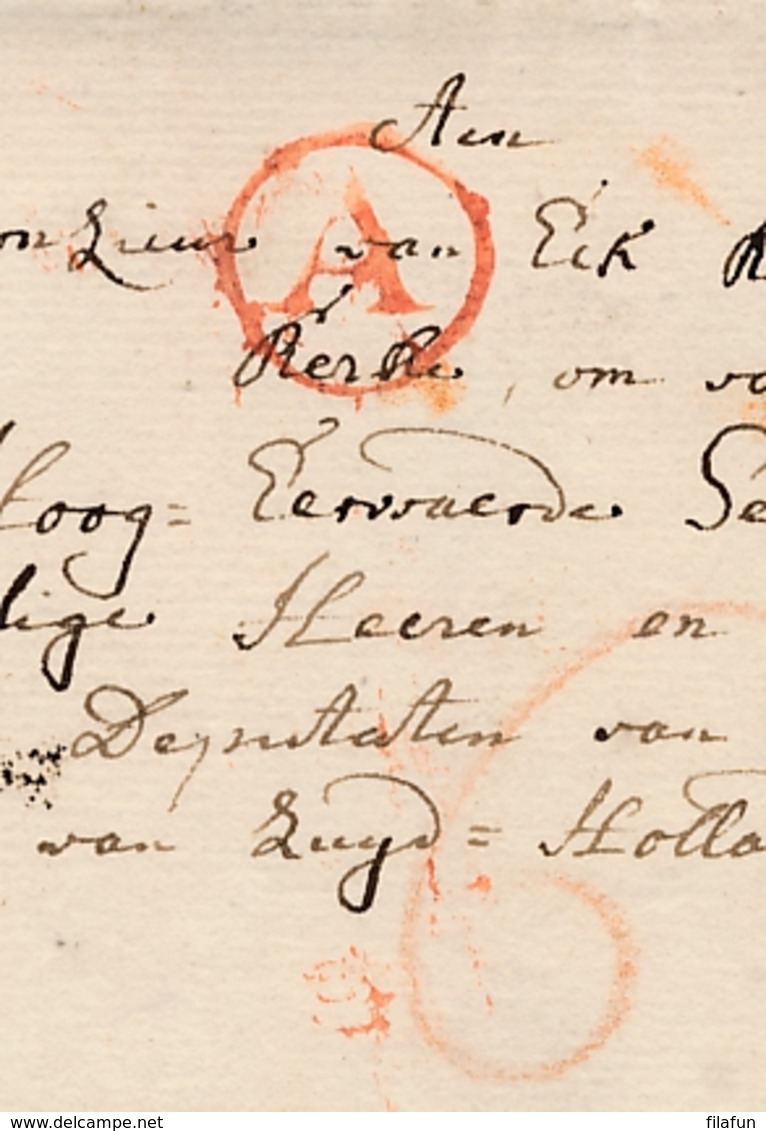 Aan
A
onZieur van Eik R
Kerke, om vo
Hoog= Eerwaerde Ge
dige Heeren en
Deputaten van
van Zuyd= Holla
6
www.delcampe.net filafun